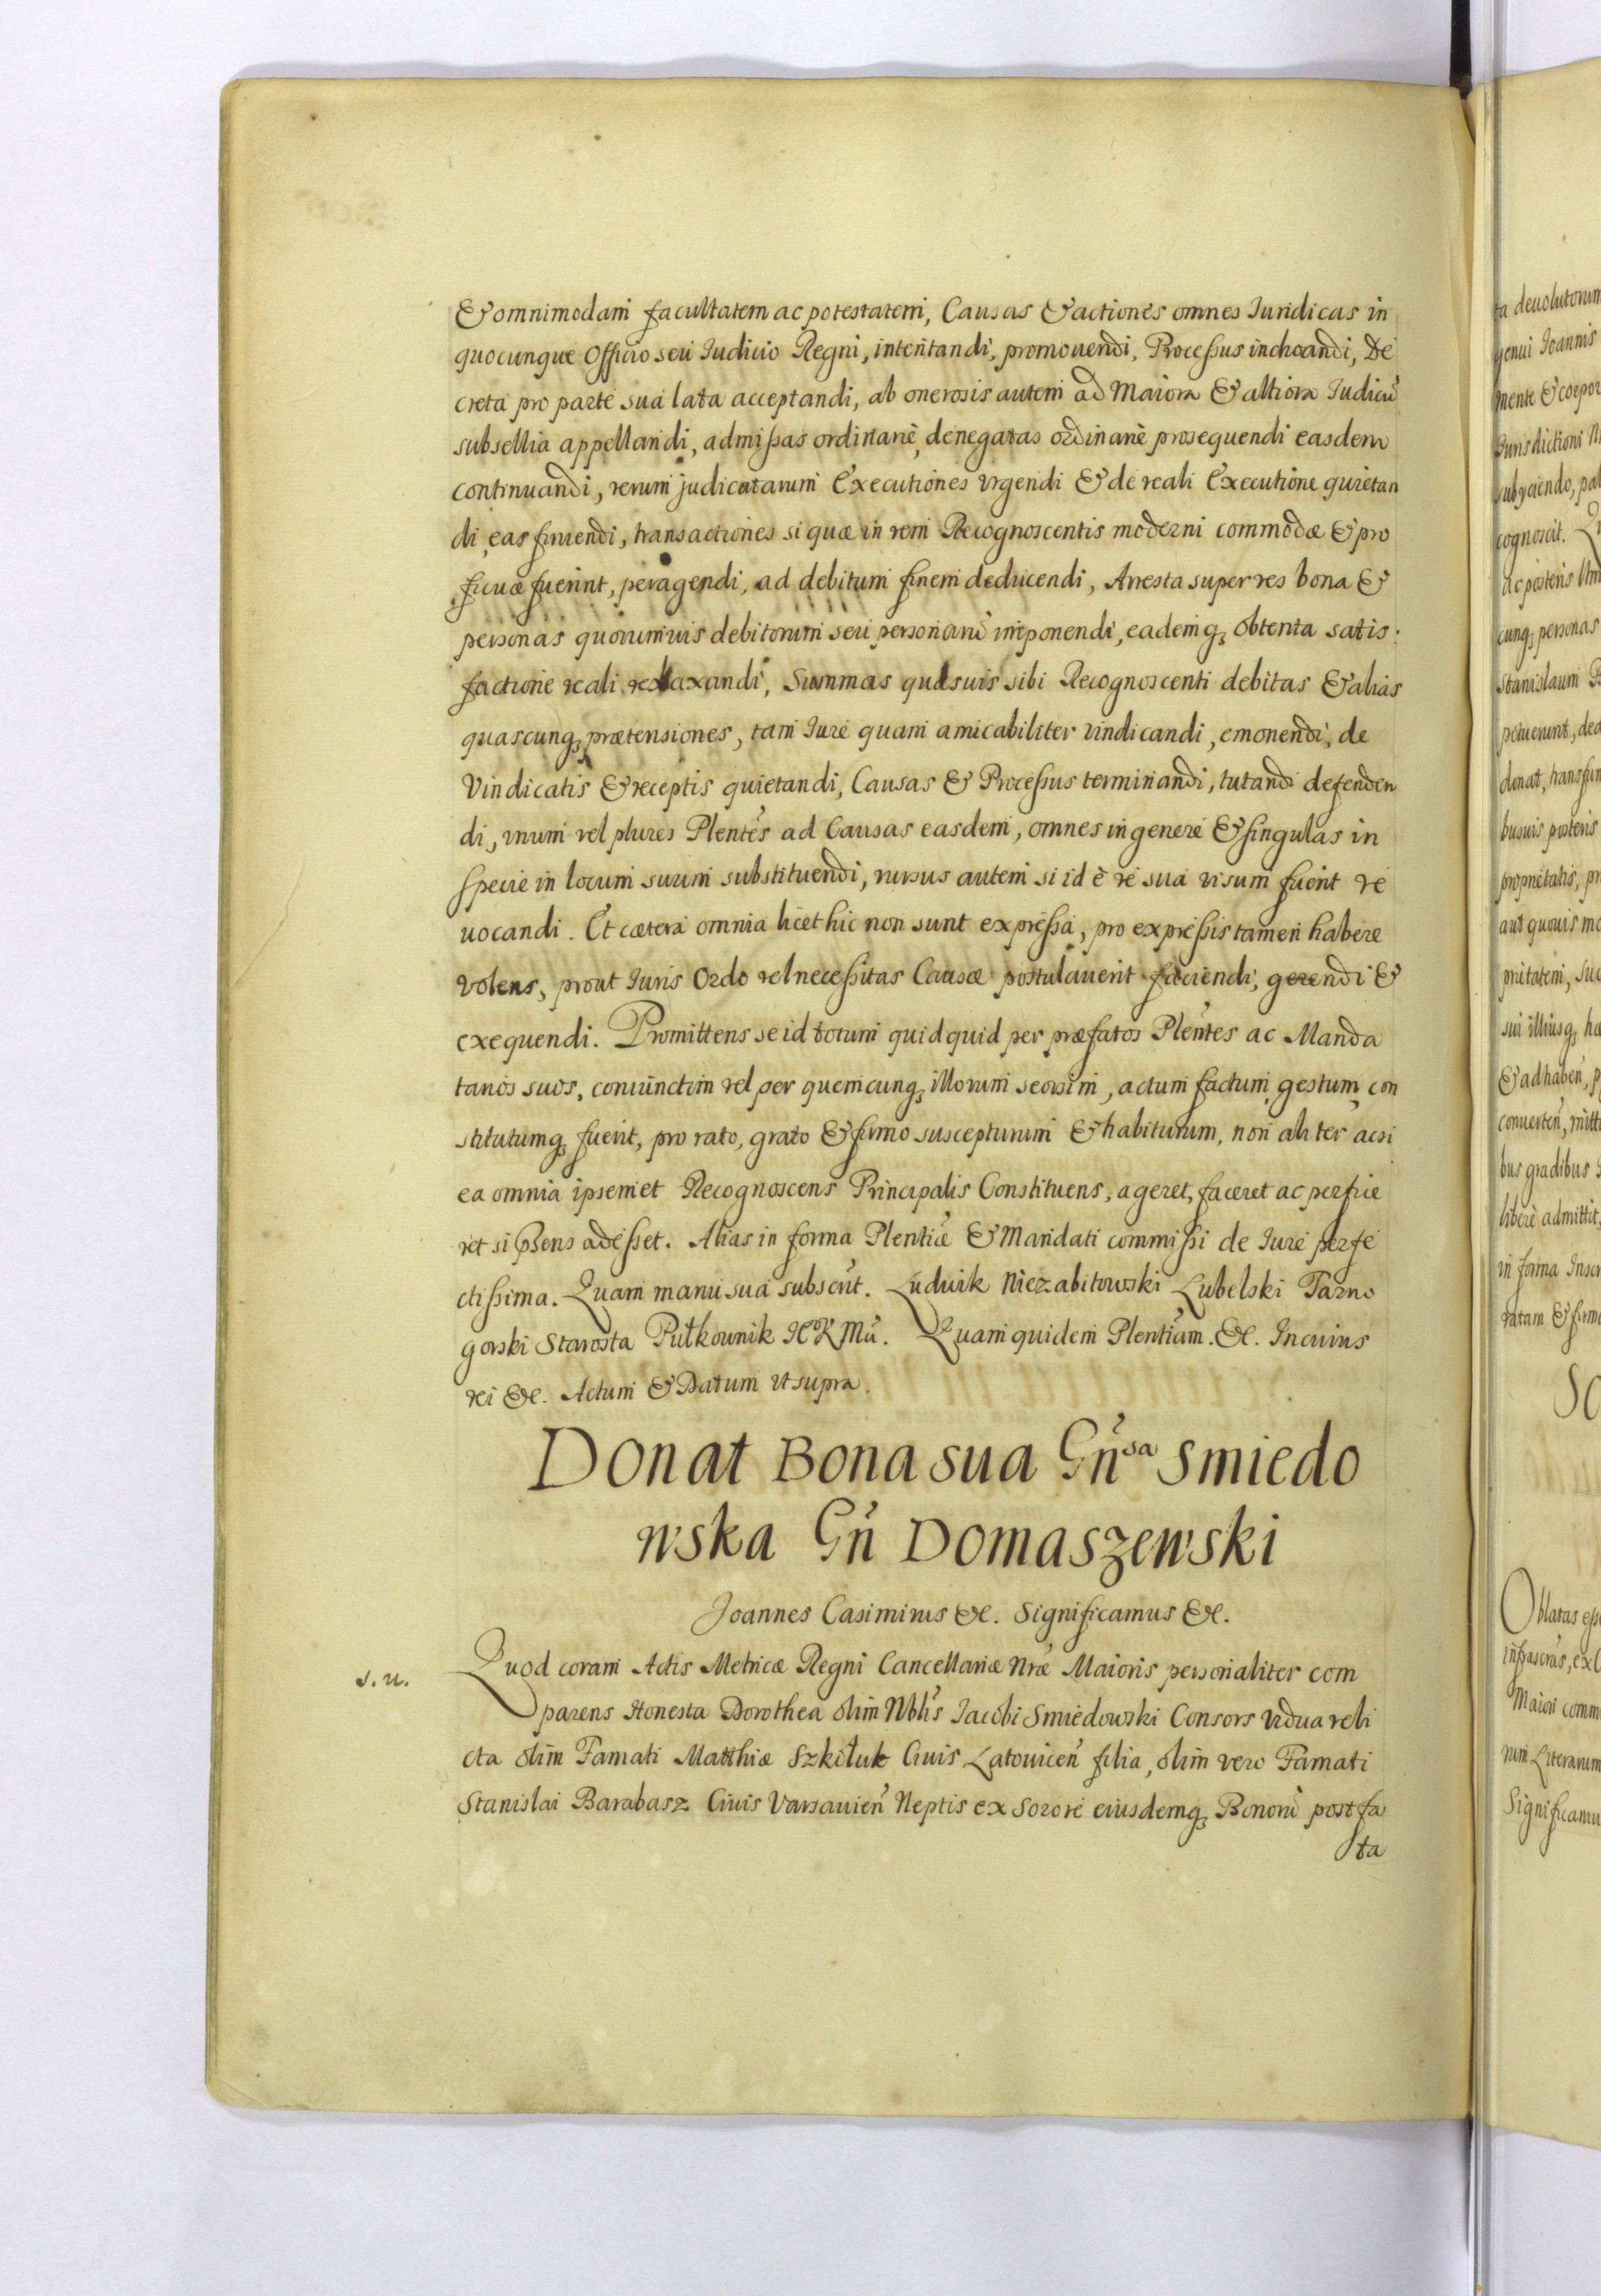 & omnimodam facultatem ac potestatem, Causas & actiones omnes Iuridicas in
quocunque Officio seu Iudicio Regni, intentandi, promouendi, Processus inchoandi, De
creta pro parte sua lata acceptandi, ab onerosis autem ad Maiora & altiora Iudicũ
subsellia appellandi, admissas ordinariè, denegatas ordinariè prosequendi easdem
continuandi, rerum judicatarum Executiones vrgendi & de reali Executione quietan
di, eas finiendi, transactiones si quæ in rem Recognoscentis moderni commodæ & pro
ficuæ fuerint, peragendi, ad debitum finem deducendi, Arresta super res bona &
personas quorumuis debitorum seu personarũ imponendi, eademq; obtenta satis.
factione reali relaxandi, Summas quasuis sibi Recognoscenti debitas & alias
quascunq; prætensiones, tam Iure quam amicabiliter vindicandi, emonendi, de
Vindicatis & receptis quietandi, Causas & Processus terminandi, tutandi defenden
di, vnum vel plures Plentes ad Causas easdem, omnes in genere & singulas in
specie in locum suum substituendi, rursus autem si id è re sua visum fuerit re
uocandi. Et cætera omnia licet hic non sunt expressa, pro expressis tamen habere
volens, prout Iuris Ordo vel necessitas Causæ postulauerit faciendi, gerendi &
exequendi. Promittens se id totum quidquid per præfatos Plentes ac Manda
tarios suos, coniunctim vel per quemcunq; illorum seorsim, actum factum, gestum, con
stitutumq; fuerit, pro rato, grato & firmo suscepturum & habiturum, non aliter acsi
ea omnia ipsemet Recognoscens Principalis Constituens, ageret, faceret ac perficie
ret si pñsens adesset. Alias in forma Plentiæ & Mandati commissi de Iure perfe
ctissima. Quam manu sua subscrit. Ludwik Niezabitowski Lubelski Tarno
gorski Starosta Pułkownik IKMci. Quam quidem Plentiam. &c. In cuius
rei &c. Actum & Datum vt supra.
Donat Bona sua Gñsa Smiedo
wska Gñ Domaszewski
Joannes Casimirus &c. Significamus &c.
s. u.
Quod coram Actis Metricæ Regni Cancellariæ Nræ Maioris personaliter com
parens Honesta Dorothea olim Nblis Iacobi Smiedowski Consors vidua reli
cta olim Famati Matthiæ Szkiłuk Ciuis Latouicen̄ filia, olim vero Famati
Stanislai Barabasz Ciuis Varsauien̄ Neptis ex Sorore eiusdemq; Bonorũ post fa
ta